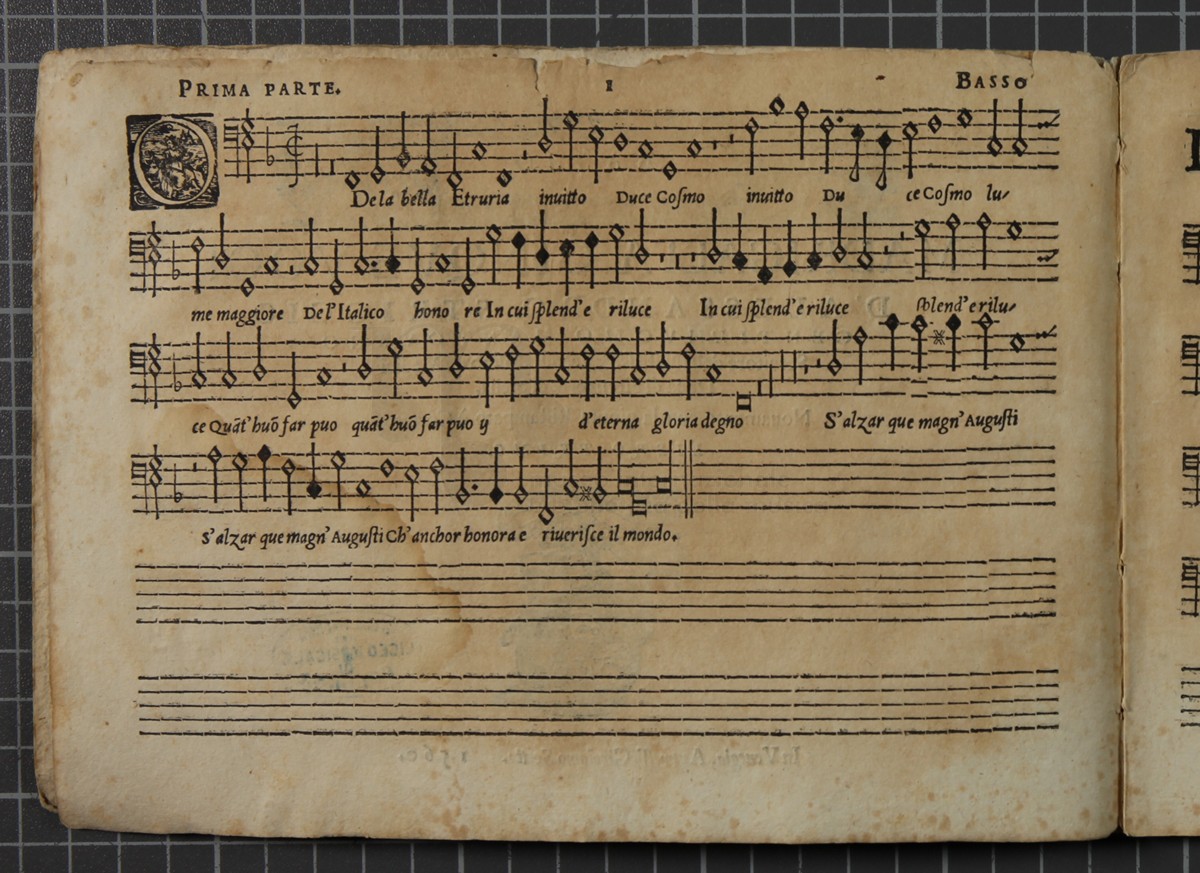 PRIMA PARTE. 1 BASSO
O Dela bella Etruria inuitto Duce Coſmo inuitto Du ce Coſmo lu
me maggiore Del'Italico hono re In cui ſplend'e riluce In cui ſplend'e riluce ſplend'e rilu
ce Quāt'huō far puo quāt'huō far puo ij d'eterna gloria degno S'alzar que magn'Auguſti
S'alzar que magn'Auguſti Ch'anchor honora e riueriſce il mondo.